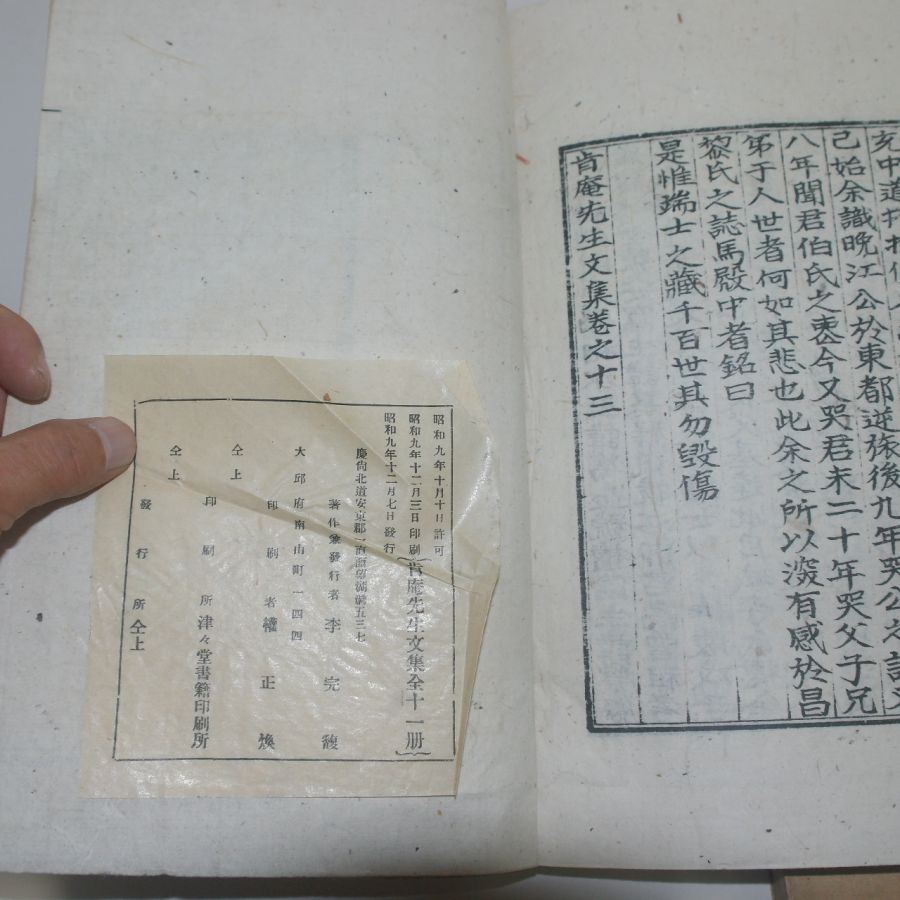 充中道
己始余識晩江公於東都逆旅後九年哭公之
八年聞君伯氏之喪今又哭君未二十年哭父子兄
弟于人世者何如其悲也此余之所以深有感於昌
黎氏之誌馬殿中者銘曰
是惟瑞士之藏千百世其勿毀傷
肯庵先生文集卷之十三
昭和九年十月十日許可
昭和九年十二月三日印刷
昭和九年十二月七日發行
肯庵先生文集全十一册
慶尚北道安東郡一直面望湖洞五三七
著作兼發行者 李完馥
大邱府南山町一四四
印刷者 權正煥
仝上
印刷所 津々堂書籍印刷所
仝上
發行所 仝上